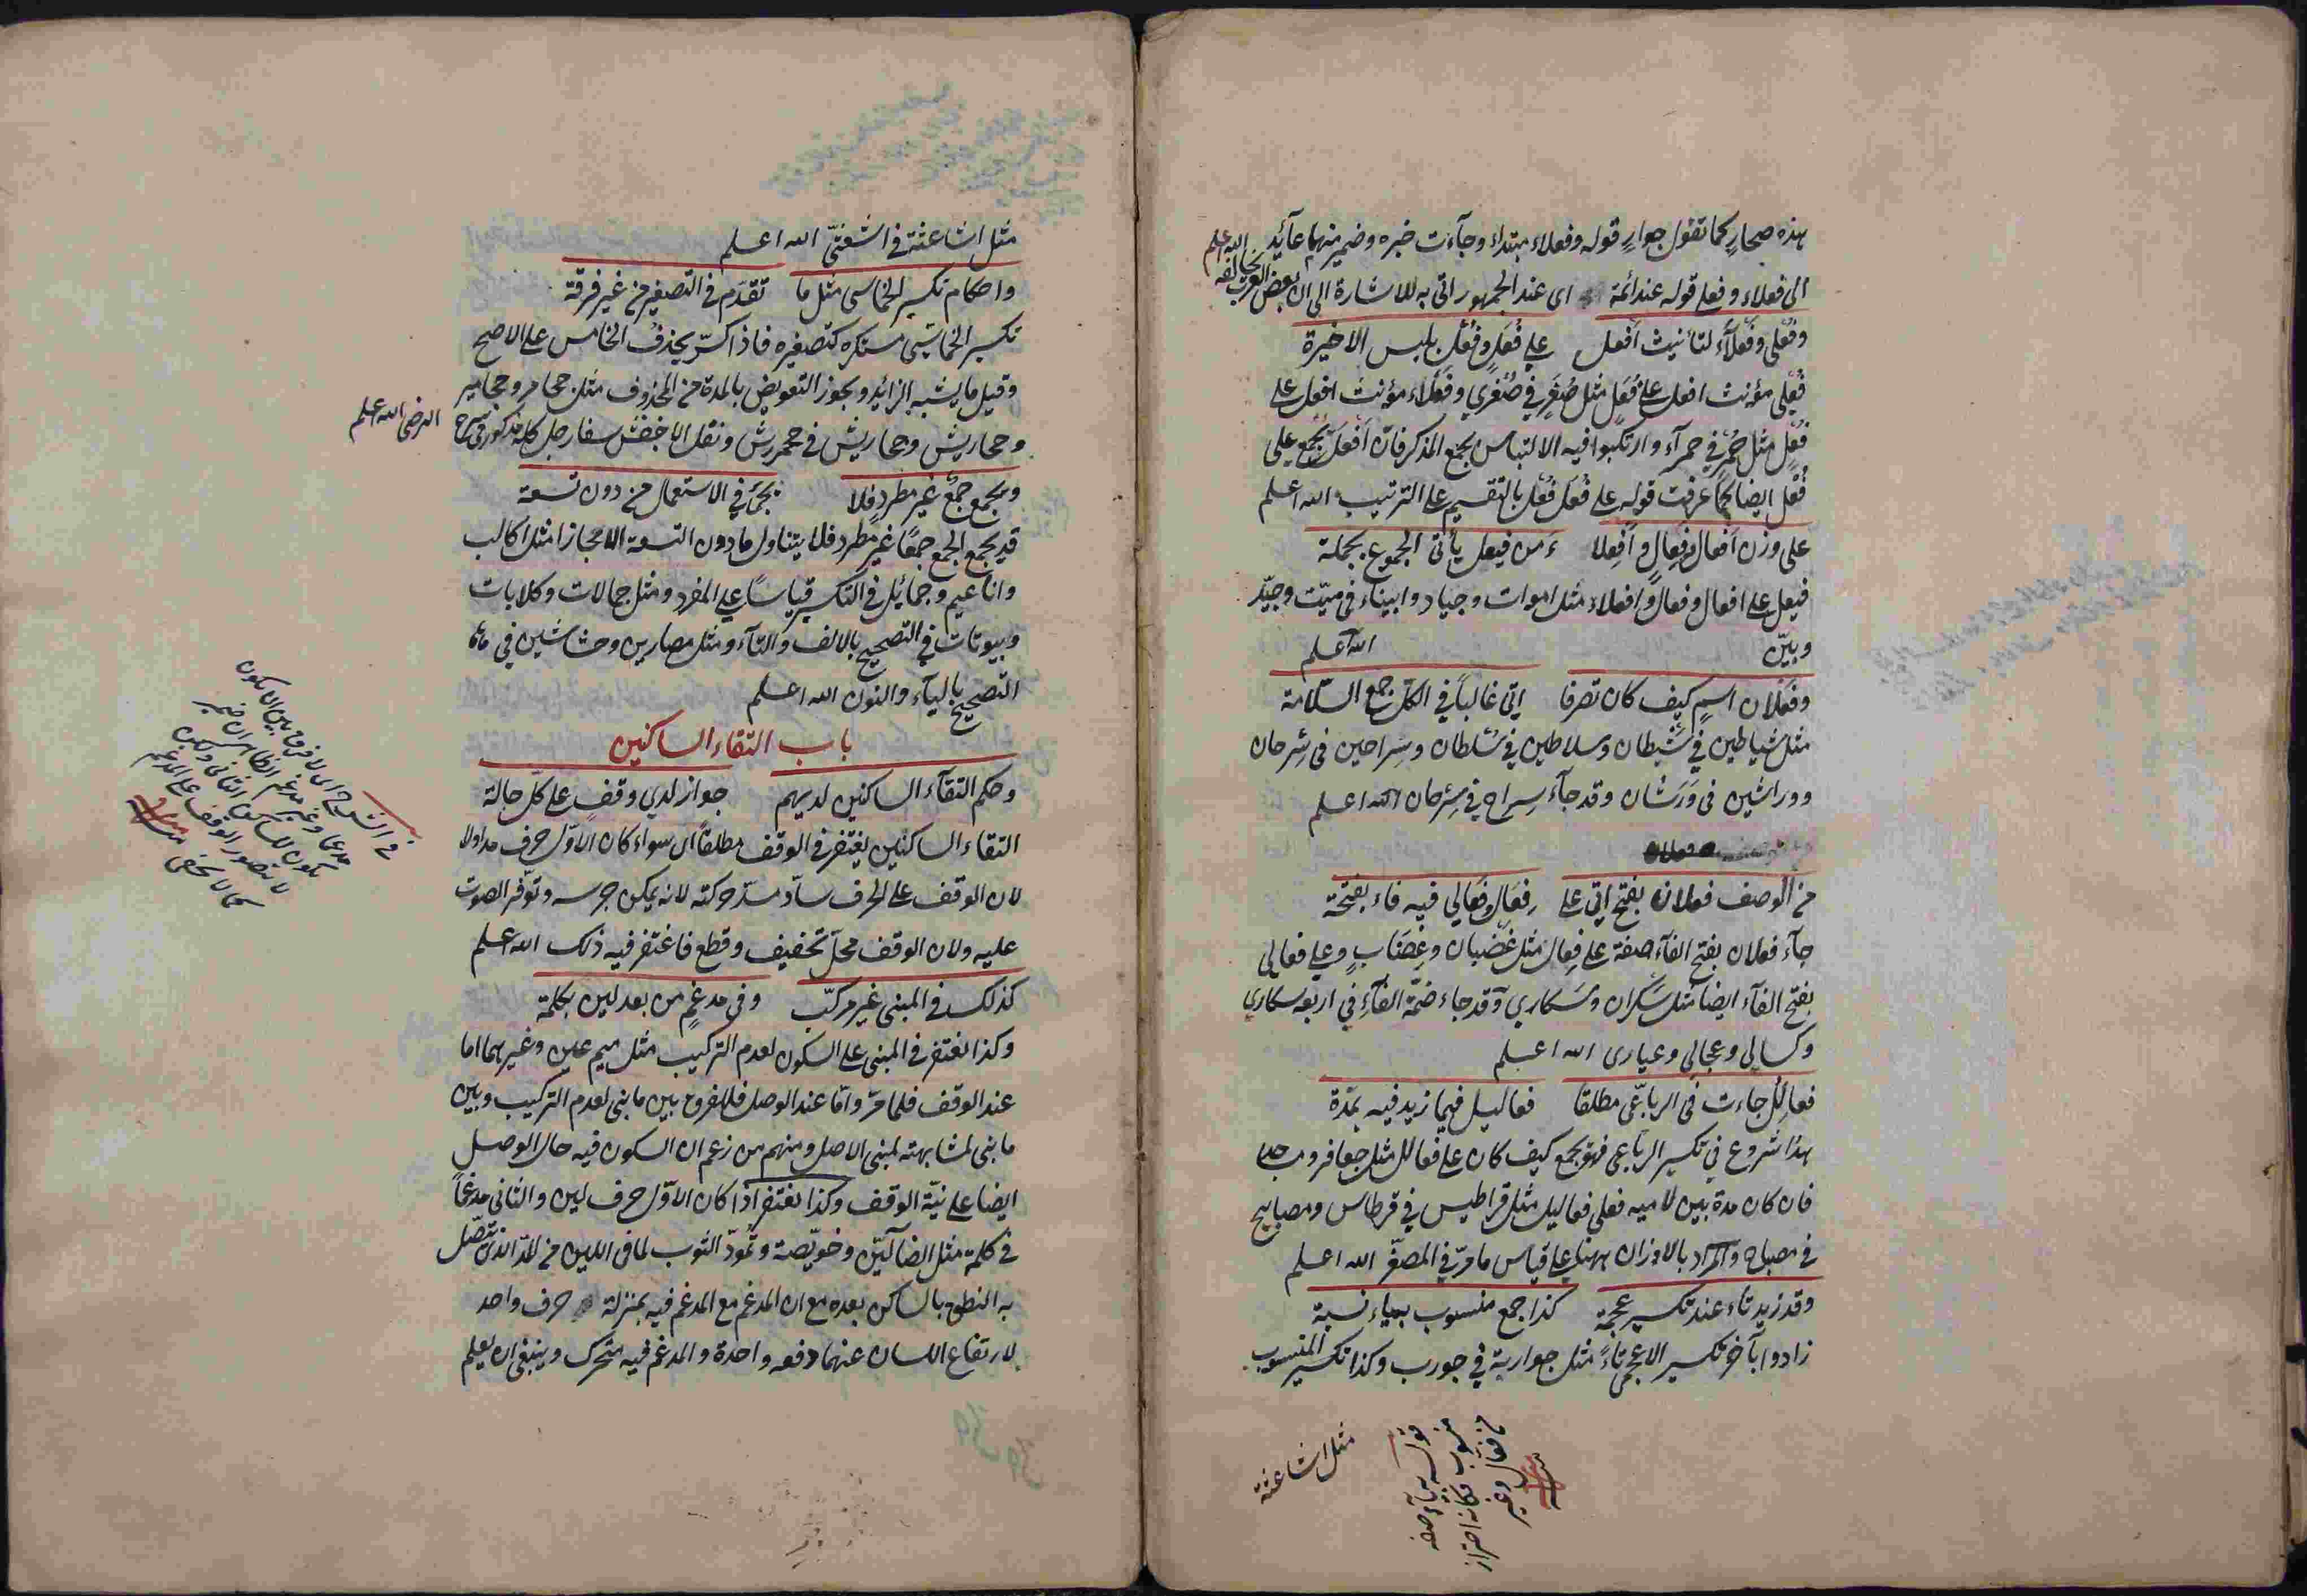 هذه صحارٍ كما تقول جوارٍ قوله وفعلاء مبتداء وجآءت خبره وضمير منهما عآئد
الى فعلاء و فعلى قوله عند ائمة اى عند الجمهور اتى به للاشارة الى ان بعض العرب يخالفه الله اعلم
وفُعْلى وفَعْلآء لتأنيث أفعل على فُعَلٍ وفُعْلٍ بلبس الاخيرة
فُعْلى مؤنث افعل على فُعَل مثل صُغَر في صُغْرى وفَعْلاء مؤنث افعل على
فُعْل مثل حُمْر في حمرآء وارتكبوا فيه الالتباس بجمع المذكر فان أفعَل يُجمع على
فُعْل ايضا كما عرفت قوله على فُعَل فُعْل بالتقسيم على الترتيب الله اعلم
على وزن أفعال فِعالٍ و أفعِلا ءَ من فيعل يأتى الجموع بجملة
فيعل على افعال وفعال وافعلاء مثل اموات وجياد وابيناء فى ميّت وجيّد
وبيّن الله اعلم
وفعلان اسمٍ كيف كان تصرفا اتى غالباً في الكل جمع السّلامة
مثل شياطين في شَيطان وسلاطين في سُلطان وسراحين فى سِرحان
ووراشين فى وَرَشان وقد جآء سِراح في سِرحان الله اعلم
من الوصف فعلان بفتح اتى على فِعَال وفَعَالى فيه فاء بفتحة
جآء فعلان بفتح الفآء صفة على فِعال مثل غَضْبان وغِضَاب و على فعالى
بفتح الفآء ايضا مثل سَكران وسَكارى وقد جاء ضمّة الفآء في اربعه سكارى
وكسالى وعجالى وغيارى الله اعلم
فعالِل جاءت فى الرباعى مطلقا فعاليل فيما زيد فيه بمدّة
هذا شروع في تكسير الرباعى فهو يجمع كيف كان على فعالل مثل جعافر و
فان كان مدة بين لاميه فعلى فعاليل مثل قراطيس في قرطاس ومصابيح
فى مصباح والمراد بالاوزان ههنا على قياس ما مرّ في المصغّر الله اعلم
وقد زيد تاء عند تكسير عجمة كذا جمع منسوب بياء نسبة
زادوا بآخر تكسير الاعجمى تاءً مثل جواربة في جورب وكذا تكسير المنسوب
مثل اشاعثة
مثل اشاعثة فى اشعثىّ الله اعلم
واحكام تكسير الخماسى مثل ما تقدّم فى التصغير من غير فرقة
تكسير الخماسى مستكره كتصغيره فاذا كسّر يحذف الخامس على الاصح
وقيل ما يشبه الزائد ويجوز التعويض بالمدة من المحذوف مثل جحامر وجحامير
وجحاريش وجحاريش فى جحمرش ونقل الاخفش سفارجل كله مذكور فى شرح الرضى الله اعلم
ويجمع جمعٌ غير مطردٍ فلا يجئ في الاستعمال من دون تسعة
قد يجمع الجمع جمعًا غير مطرد فلا يتناول ما دون التسعة الا مجازا مثل اكالب
واناعيم وجمائل فى التكسير قياساً على المفرد ومثل جمالات وكلابات
وبيوتات في التصحيح بالالف والتآء ومثل مصارين وحشاشين في
التصحيح بالياء والنون الله اعلم
باب التقاء الساكنين
وحكم التقآء الساكنين لديهم جواز لدي وقفٍ على كلّ حالة
التقاء الساكنين يغتفر فى الوقف مطلقاً اى سواء كان الاوّل حرف مد اولا
لان الوقف على الحرف سادّ مسدّ حركته لانه يمكن جرسه وتوفر الصوت
عليه ولان الوقف محلّ تخفيف وقطع فاغتفر فيه ذلك الله اعلم
كذلك فى المبنى غير مركّب وفى مدغمٍ من بعد لين بكلمة
وكذا يغتفر فى المبنى على السكون لعدم التركيب مثل ميم عين وغيرهما اما
عند الوقف فلما مرّ واما عند الوصل فللفرق بين ما بنى لعدم التركيب وبين
ما بنى لمشابهته لمبنى الاصل ومنهم من زعم ان السكون فيه حال الوصل
ايضا على نيّة الوقف وكذا يغتفر اذا كان الاوّل حرف لين والثانى مدغماً
فى كلمة مثل الضآلّين وخويّصة وتُمودّ الثوب لما فى اللين من المدّ الذى يتصّل
به النطق بالساكن بعده مع ان المدغم مع المدغم فيه بمنزلة حرف واحد
لارتفاع اللسان عنهما دفعه واحدة والمدغم فيه متحرك وينبغى ان يعلم